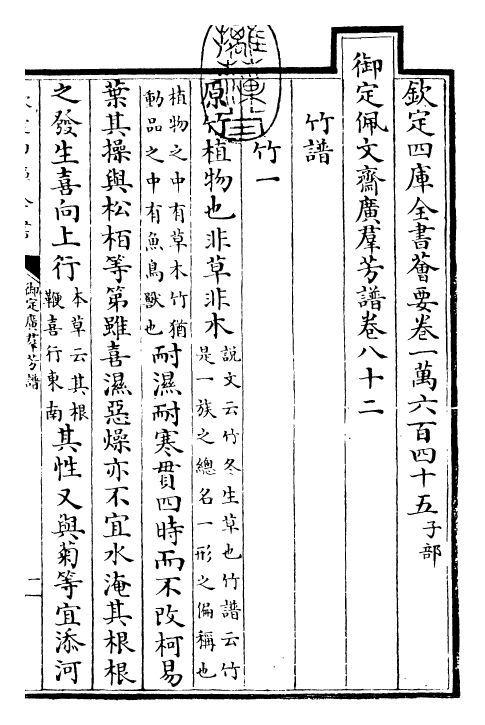 欽定四庫全書薈要卷一萬六百四十五子部
御定佩文齋廣羣芳譜卷八十二
竹譜
竹一
原竹植物也非草非木説文云竹冬生草也竹譜云竹是一族之總名一形之偏稱也
植物之中有草木竹猶動品之中有魚鳥獸也耐濕耐寒貫四時而不改柯易
葉其操與松栢等第雖喜濕惡燥亦不宜水淹其根根
之發生喜向上行本草云其根鞭喜行東南其性又與菊等宜添河
御定廣羣芳譜
一